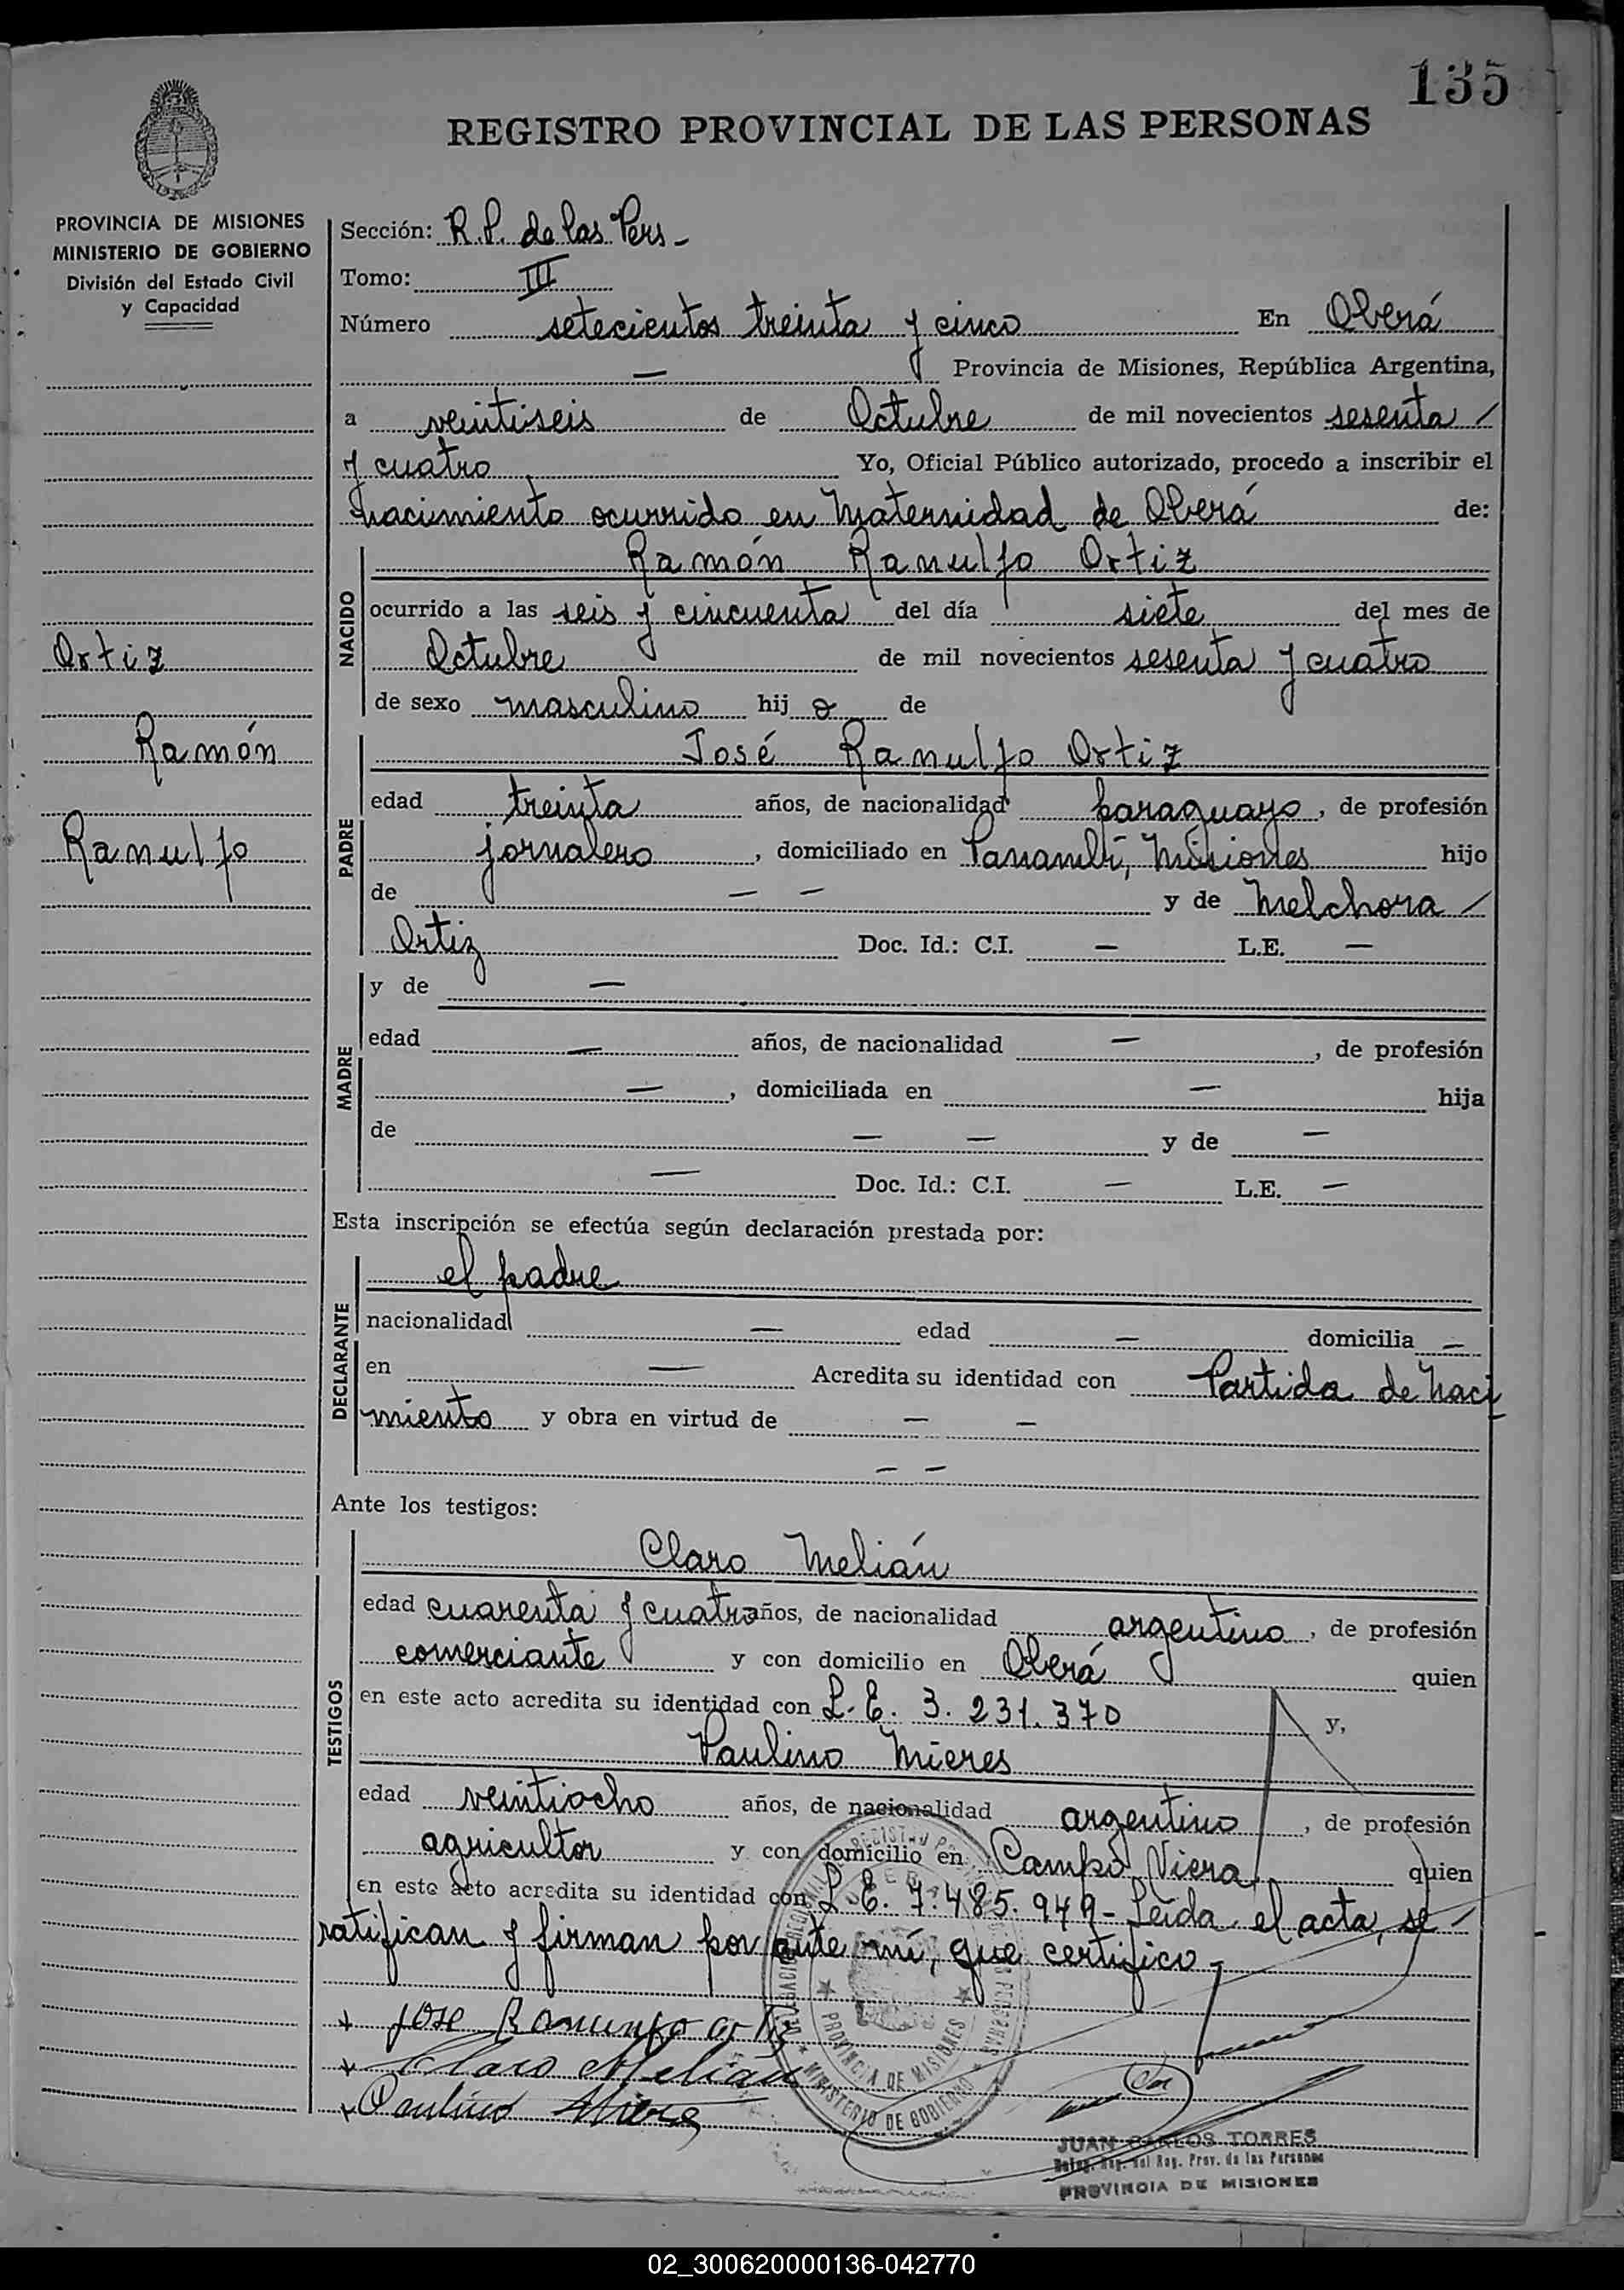 135
REGISTRO PROVINCIAL DE LAS PERSONAS
PROVINCIA DE MISIONES
MINISTERIO DE GOBIERNO
División del Estado Civil
y Capacidad
Ortiz
Ramón
Ranulfo
Sección: R.P. de las Pers -
Tomo: III
Número setecientos treinta y cinco En Oberá
— Provincia de Misiones, República Argentina,
a veintiseis de Octubre de mil novecientos sesenta /
y cuatro Yo, Oficial Público autorizado, procedo a inscribir el
nacimiento ocurrido en Maternidad de Oberá de:
NACIDO
Ramón Ranulfo Ortiz
ocurrido a las seis y cincuenta del día siete del mes de
Octubre de mil novecientos sesenta y cuatro
de sexo masculino hij o de
PADRE
José Ranulfo Ortiz
edad treinta años, de nacionalidad paraguayo, de profesión
jornalero, domiciliado en Panambí, Misiones hijo
de — — y de Melchora /
Ortiz Doc. Id.: C.I. — L.E. —
MADRE
y de —
edad — años, de nacionalidad —, de profesión
—, domiciliada en — hija
de — — y de —
— Doc. Id.: C.I. — L.E. —
Esta inscripción se efectúa según declaración prestada por:
DECLARANTE
el padre
nacionalidad — edad — domicilia —
en — Acredita su identidad con Partida de Naci
miento y obra en virtud de — —
— —
Ante los testigos:
TESTIGOS
Claro Melián
edad cuarenta y cuatro años, de nacionalidad argentino, de profesión
comerciante y con domicilio en Oberá quien
en este acto acredita su identidad con L.E. 3.231.370 y,
Paulino Mieres
edad veintiocho años, de nacionalidad argentino, de profesión
agricultor y con domicilio en Campo Viera quien
en este acto acredita su identidad con L.E. 7.485.949 - Leída el acta, se /
ratifican y firman por ante mí, que certifico -
Jose Ranunfo Ortiz
Claro Melián
Paulino Mieres
PROVINCIA DE MISIONES
MINISTERIO DE GOBIERNO
JUAN CARLOS TORRES
Reg. Prov. de las Personas
PROVINCIA DE MISIONES
02_300620000136-042770